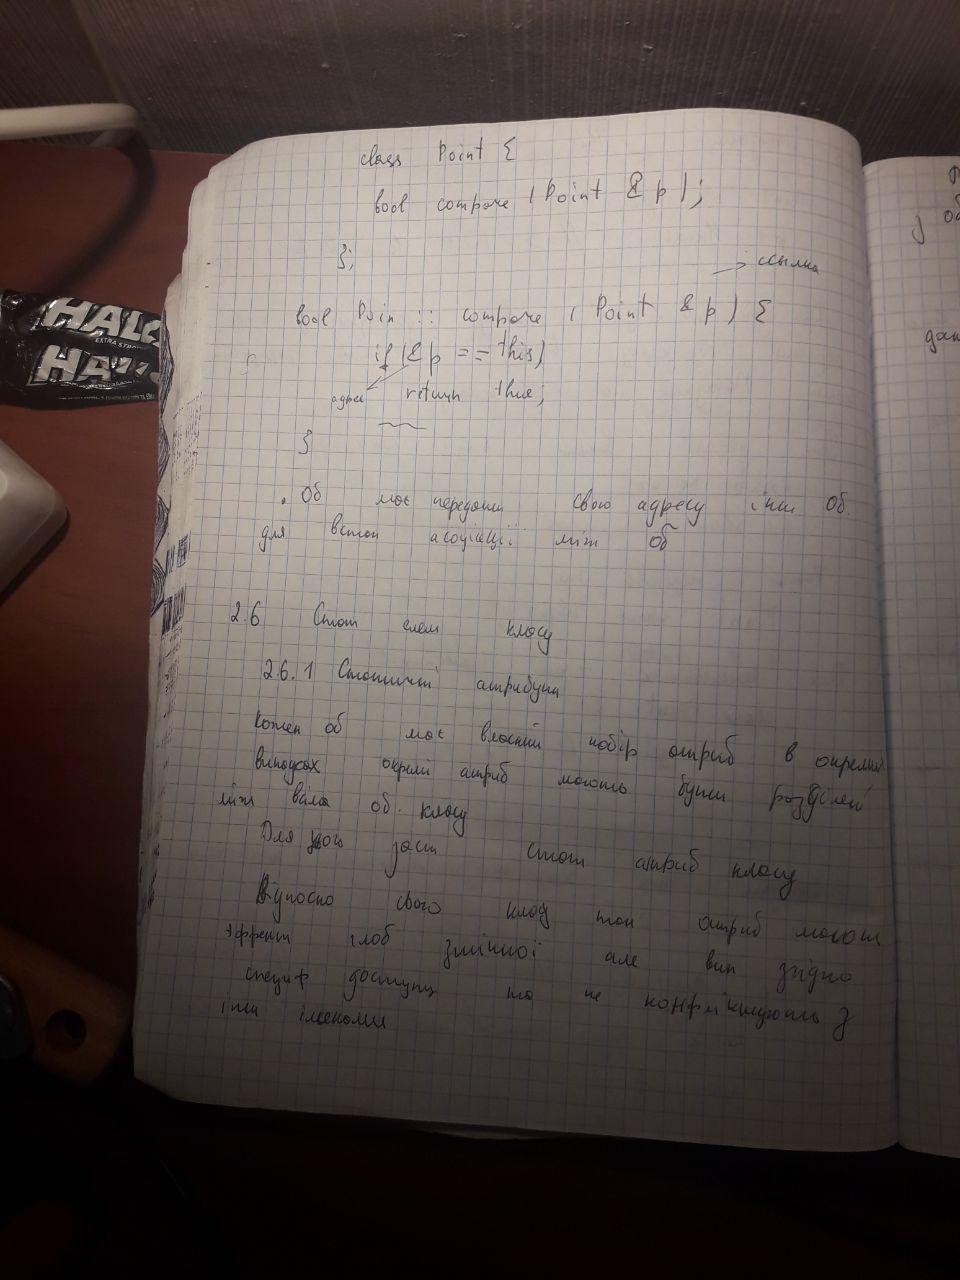 class Point {
bool compare (Point & p);
};
ссылка
bool Poin :: compare ( Point & p) {
if (&p == this)
адрес return true;
}
. Об має передати свою адресу інш об.
для встан асоціації між об
2.6 Стат елем класу
2.6.1 Статичні атрибути
Кожен об має власний набір атриб в окремих
випадках окремі атриб можуть бути розділені
між всіма об. класу
Для цього заст стат атриб класу
Відносно свого класу такі атриб мают
ефект глоб змінної але вик згідно
специф доступу та не конфліктують з
інш іменами
HALLS
EXTRA STRONG
HALLS
об
дан